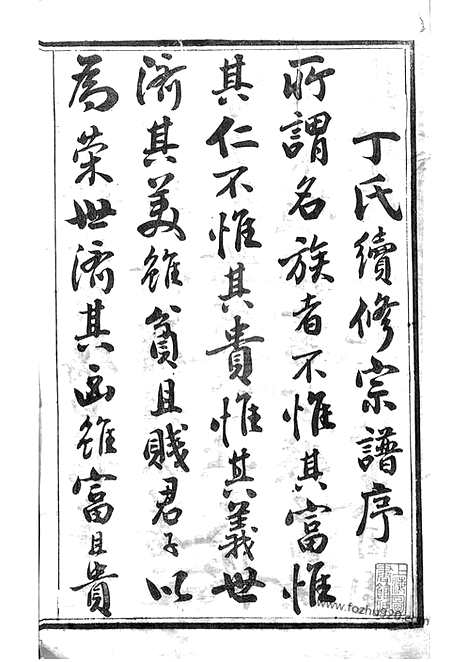 丁氏續修宗譜序
所謂名族者不惟其富惟
其仁不惟其貴惟其義世
濟其美雖貧且賤君子以
為榮世濟其凶雖富且貴
www.fozhu920.com